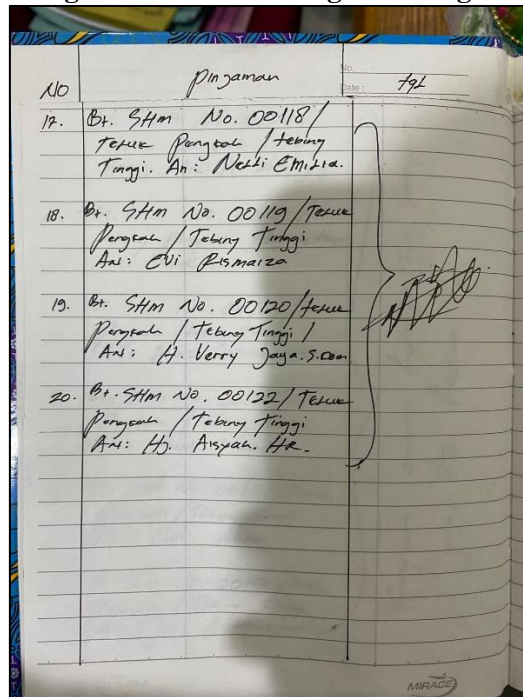 No.
Date :
NO Pinjaman tgl
17. Bt. SHM No. 00118/
Teluk Pengkah / tebing
Tinggi. An: Nelli Emilia.
18. Bt. SHM No. 00119/Teluk
Pengkah / Tebing Tinggi
An: EVi Rismaiza
19. Bt. SHM No. 00120/teluk
Pengkah / Tebing Tinggi /
An: H. Verry Jaya. S.Com
20. Bt. SHM No. 00122/ Teluk
Pengkah / Tebing Tinggi
An: Hj. Aisyah. HR.
MIRAGE